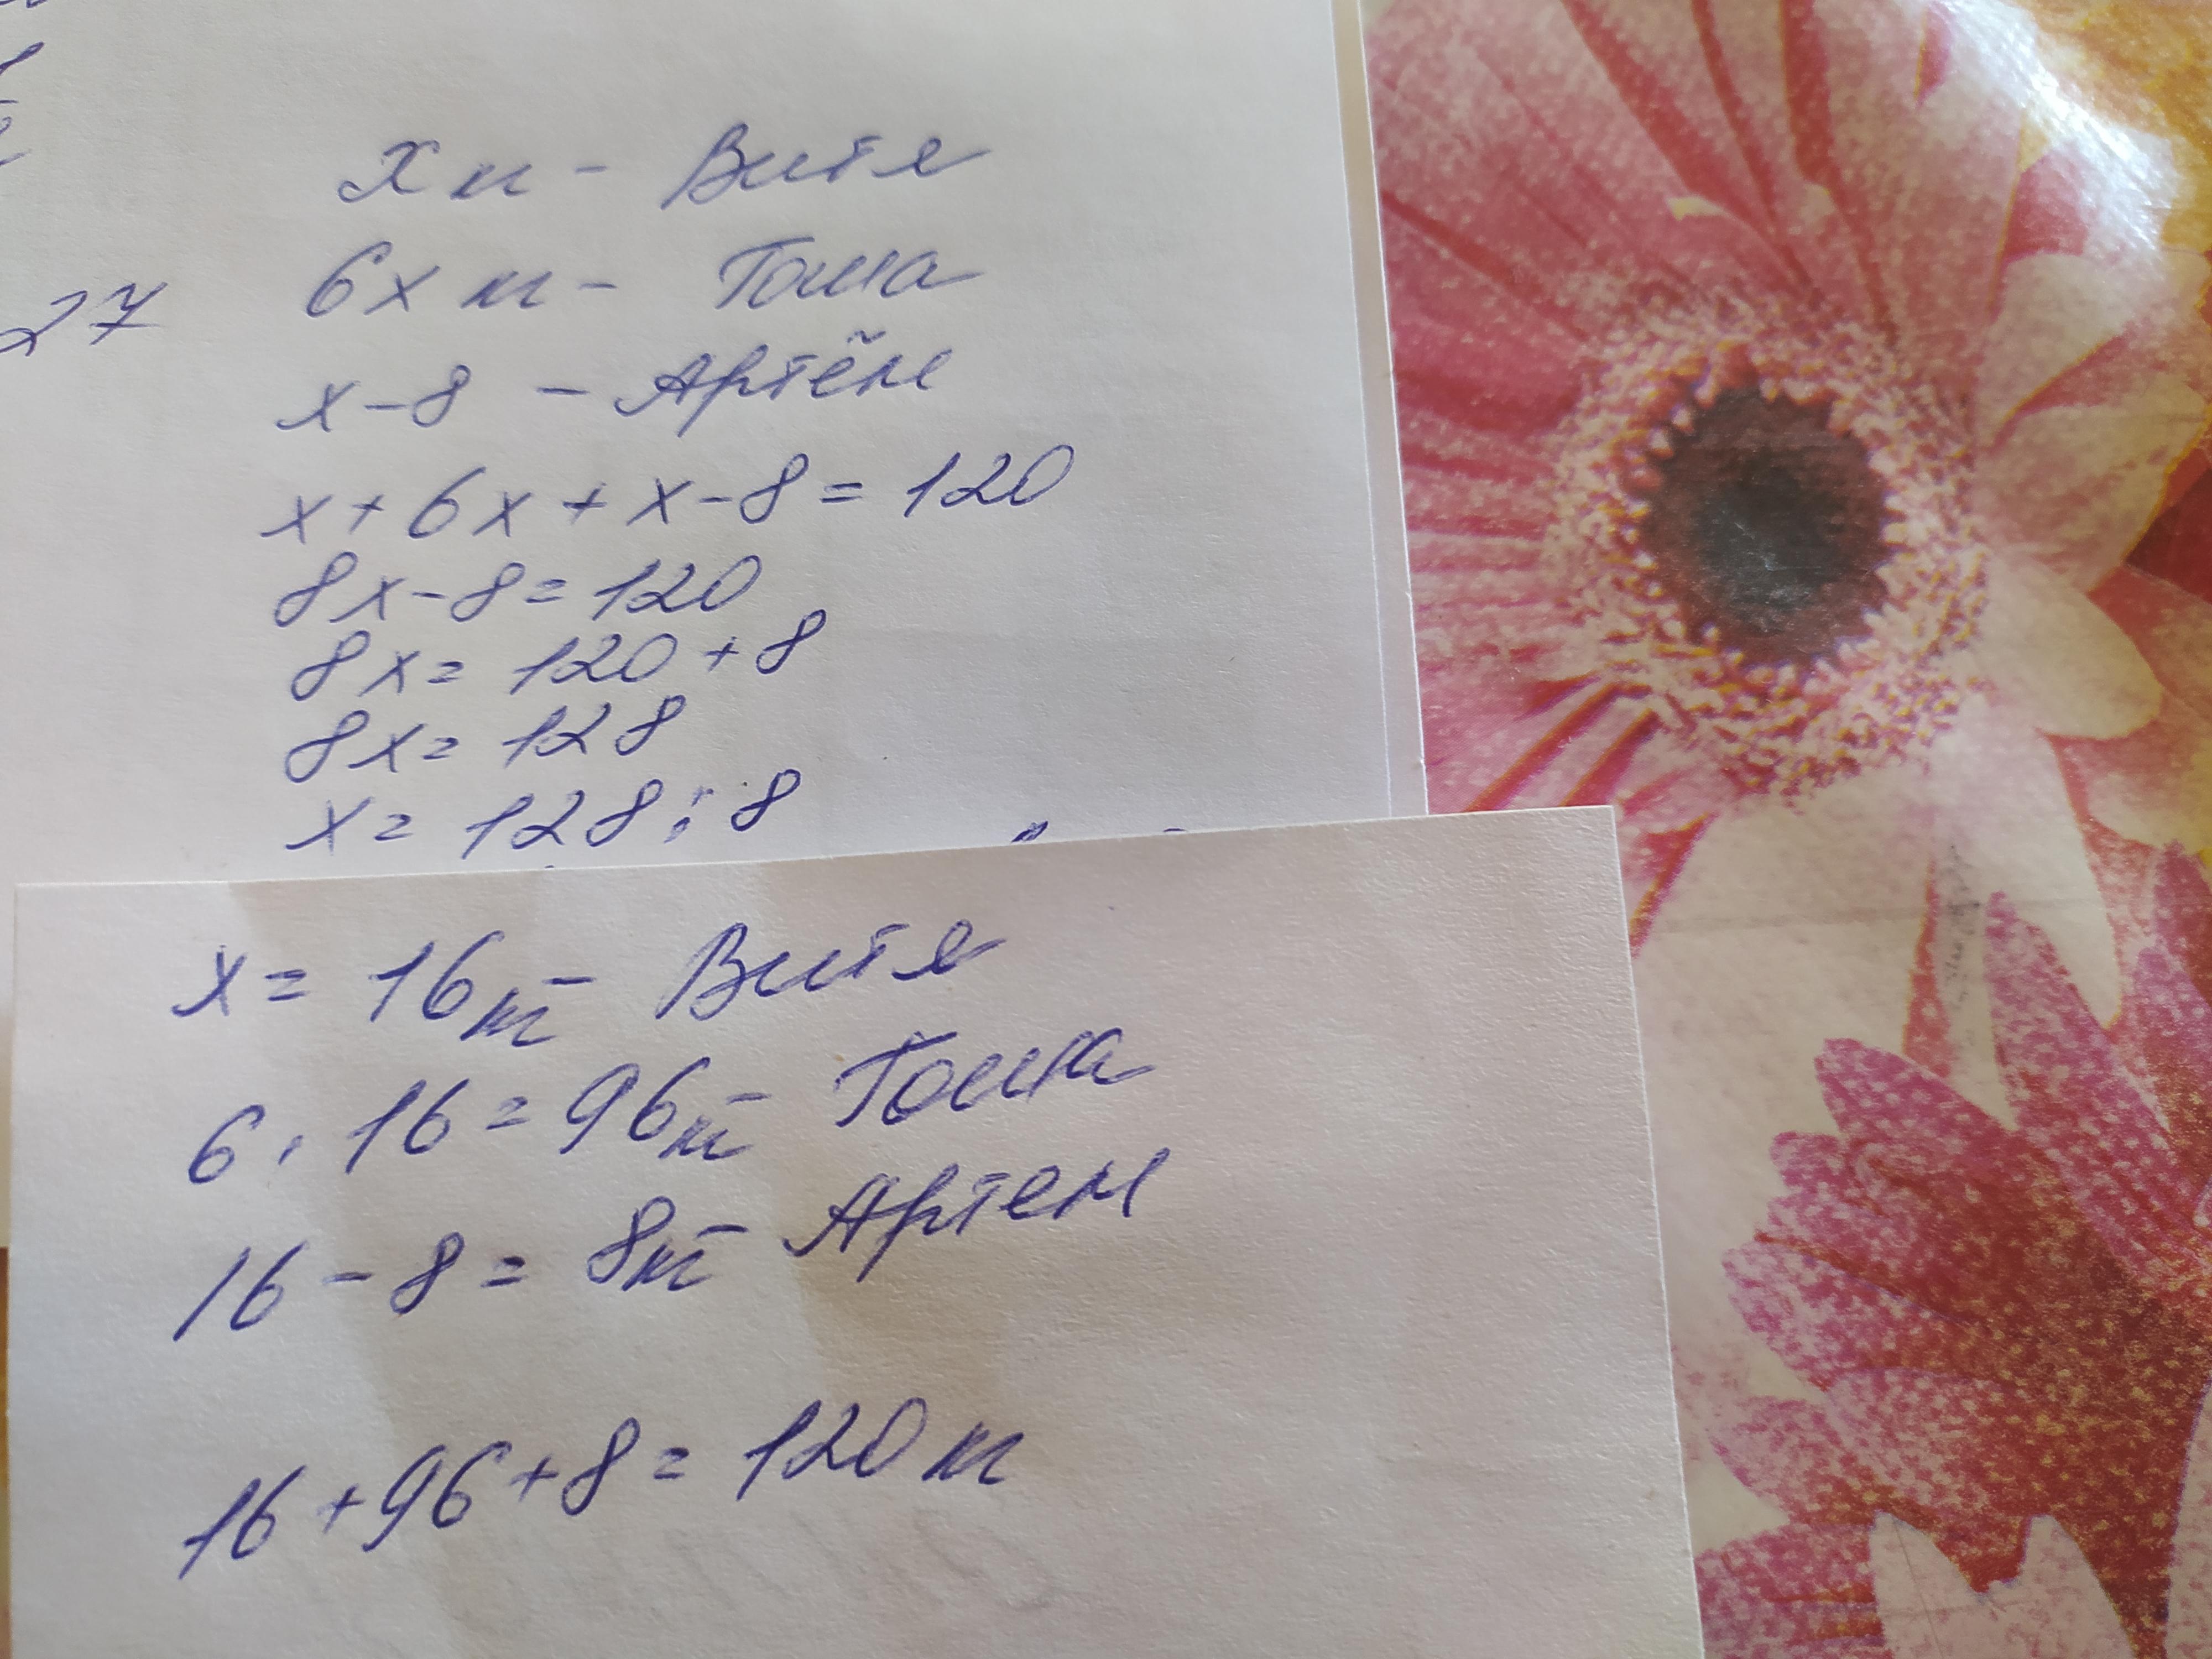 27
x м - Витя
6x м - Гоша
x-8 - Артём
x+6x+x-8=120
8x-8=120
8x=120+8
8x=128
x=128:8
x=16м - Витя
6·16=96м - Гоша
16-8=8м - Артем
16+96+8=120м